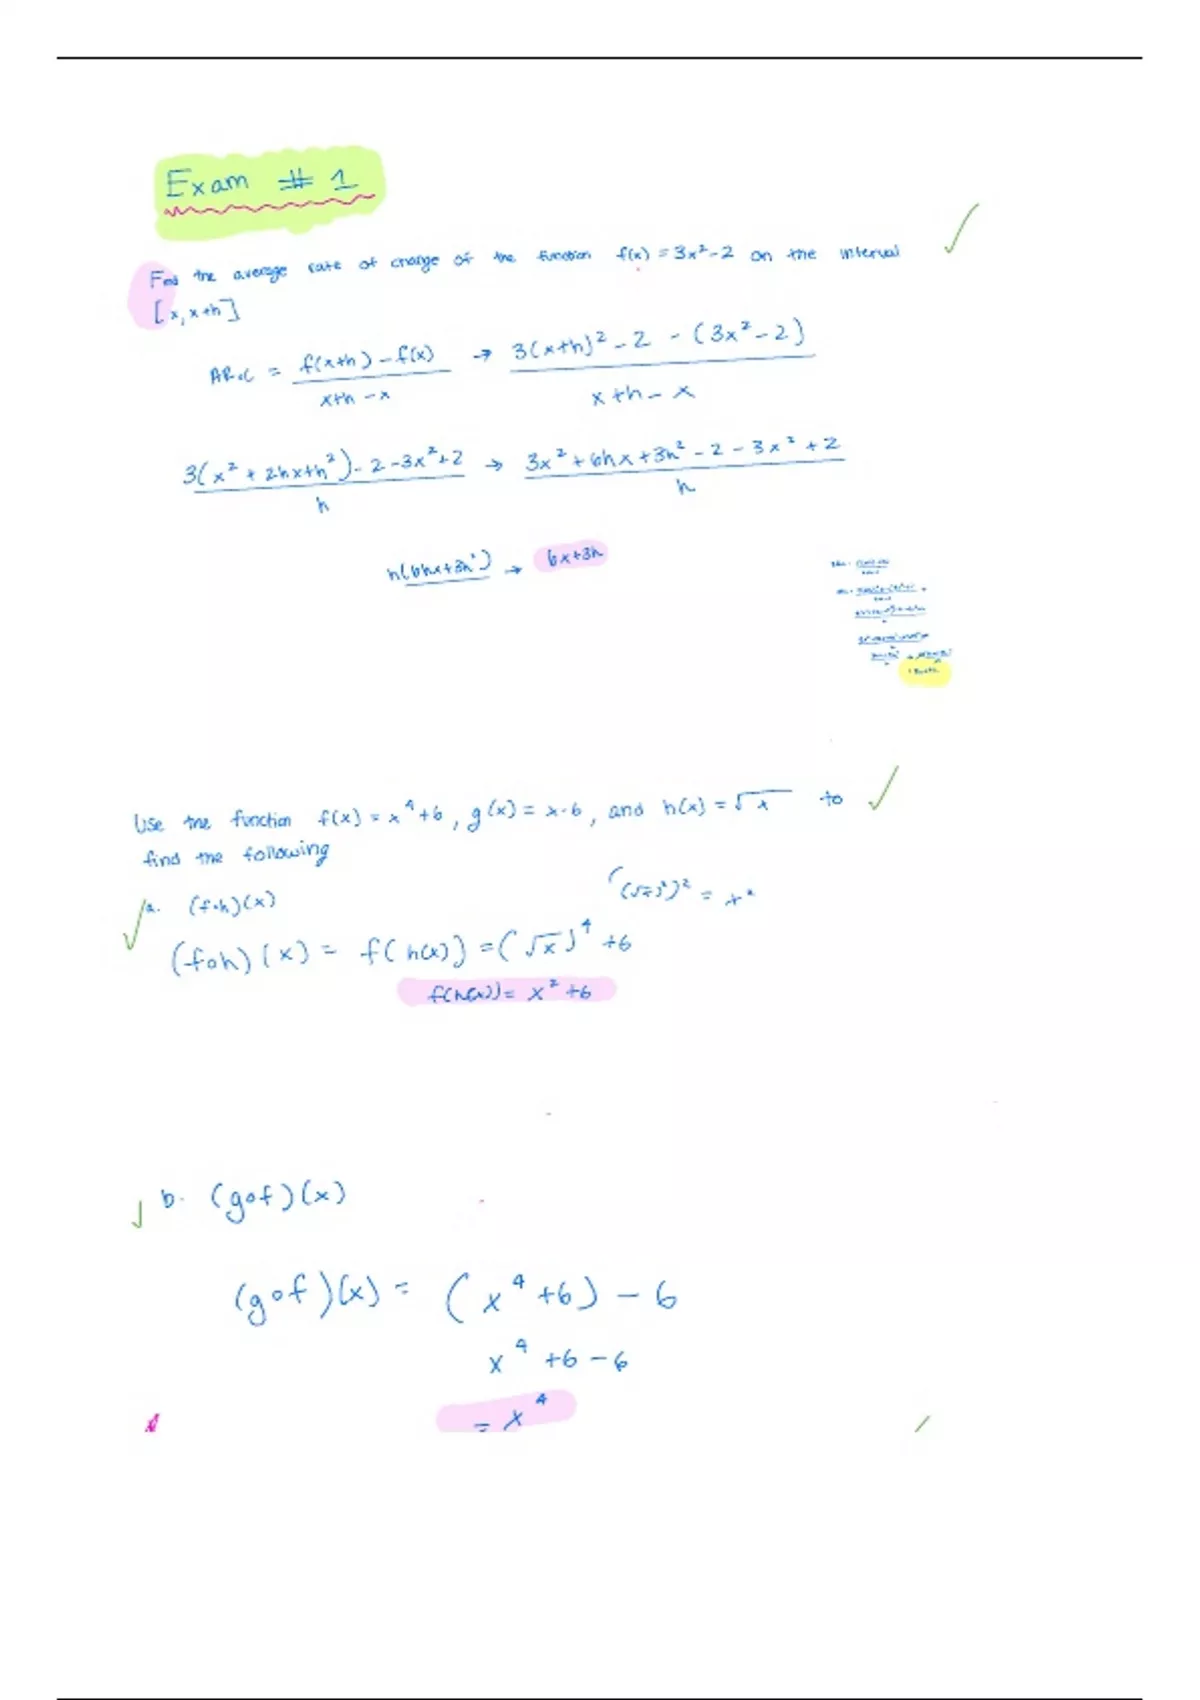 Exam # 1
Find the average rate of change of the function f(x) = 3x² - 2 on the interval
[x, x+h]
AR.C = f(x+h) - f(x) / x+h - x → 3(x+h)² - 2 - (3x² - 2) / x+h - x
3(x² + 2hx + h²) - 2 - 3x² + 2 / h → 3x² + 6hx + 3h² - 2 - 3x² + 2 / h
h(6hx + 3h²) → 6x + 3h
Use the function f(x) = x⁴ + 6, g(x) = x - 6, and h(x) = √x to
find the following
a. (foh)(x)
= x²
(foh)(x) = f(h(x)) = (√x)⁴ + 6
f(h(x)) = x² + 6
b. (gof)(x)
(gof)(x) = (x⁴ + 6) - 6
x⁴ + 6 - 6
= x⁴